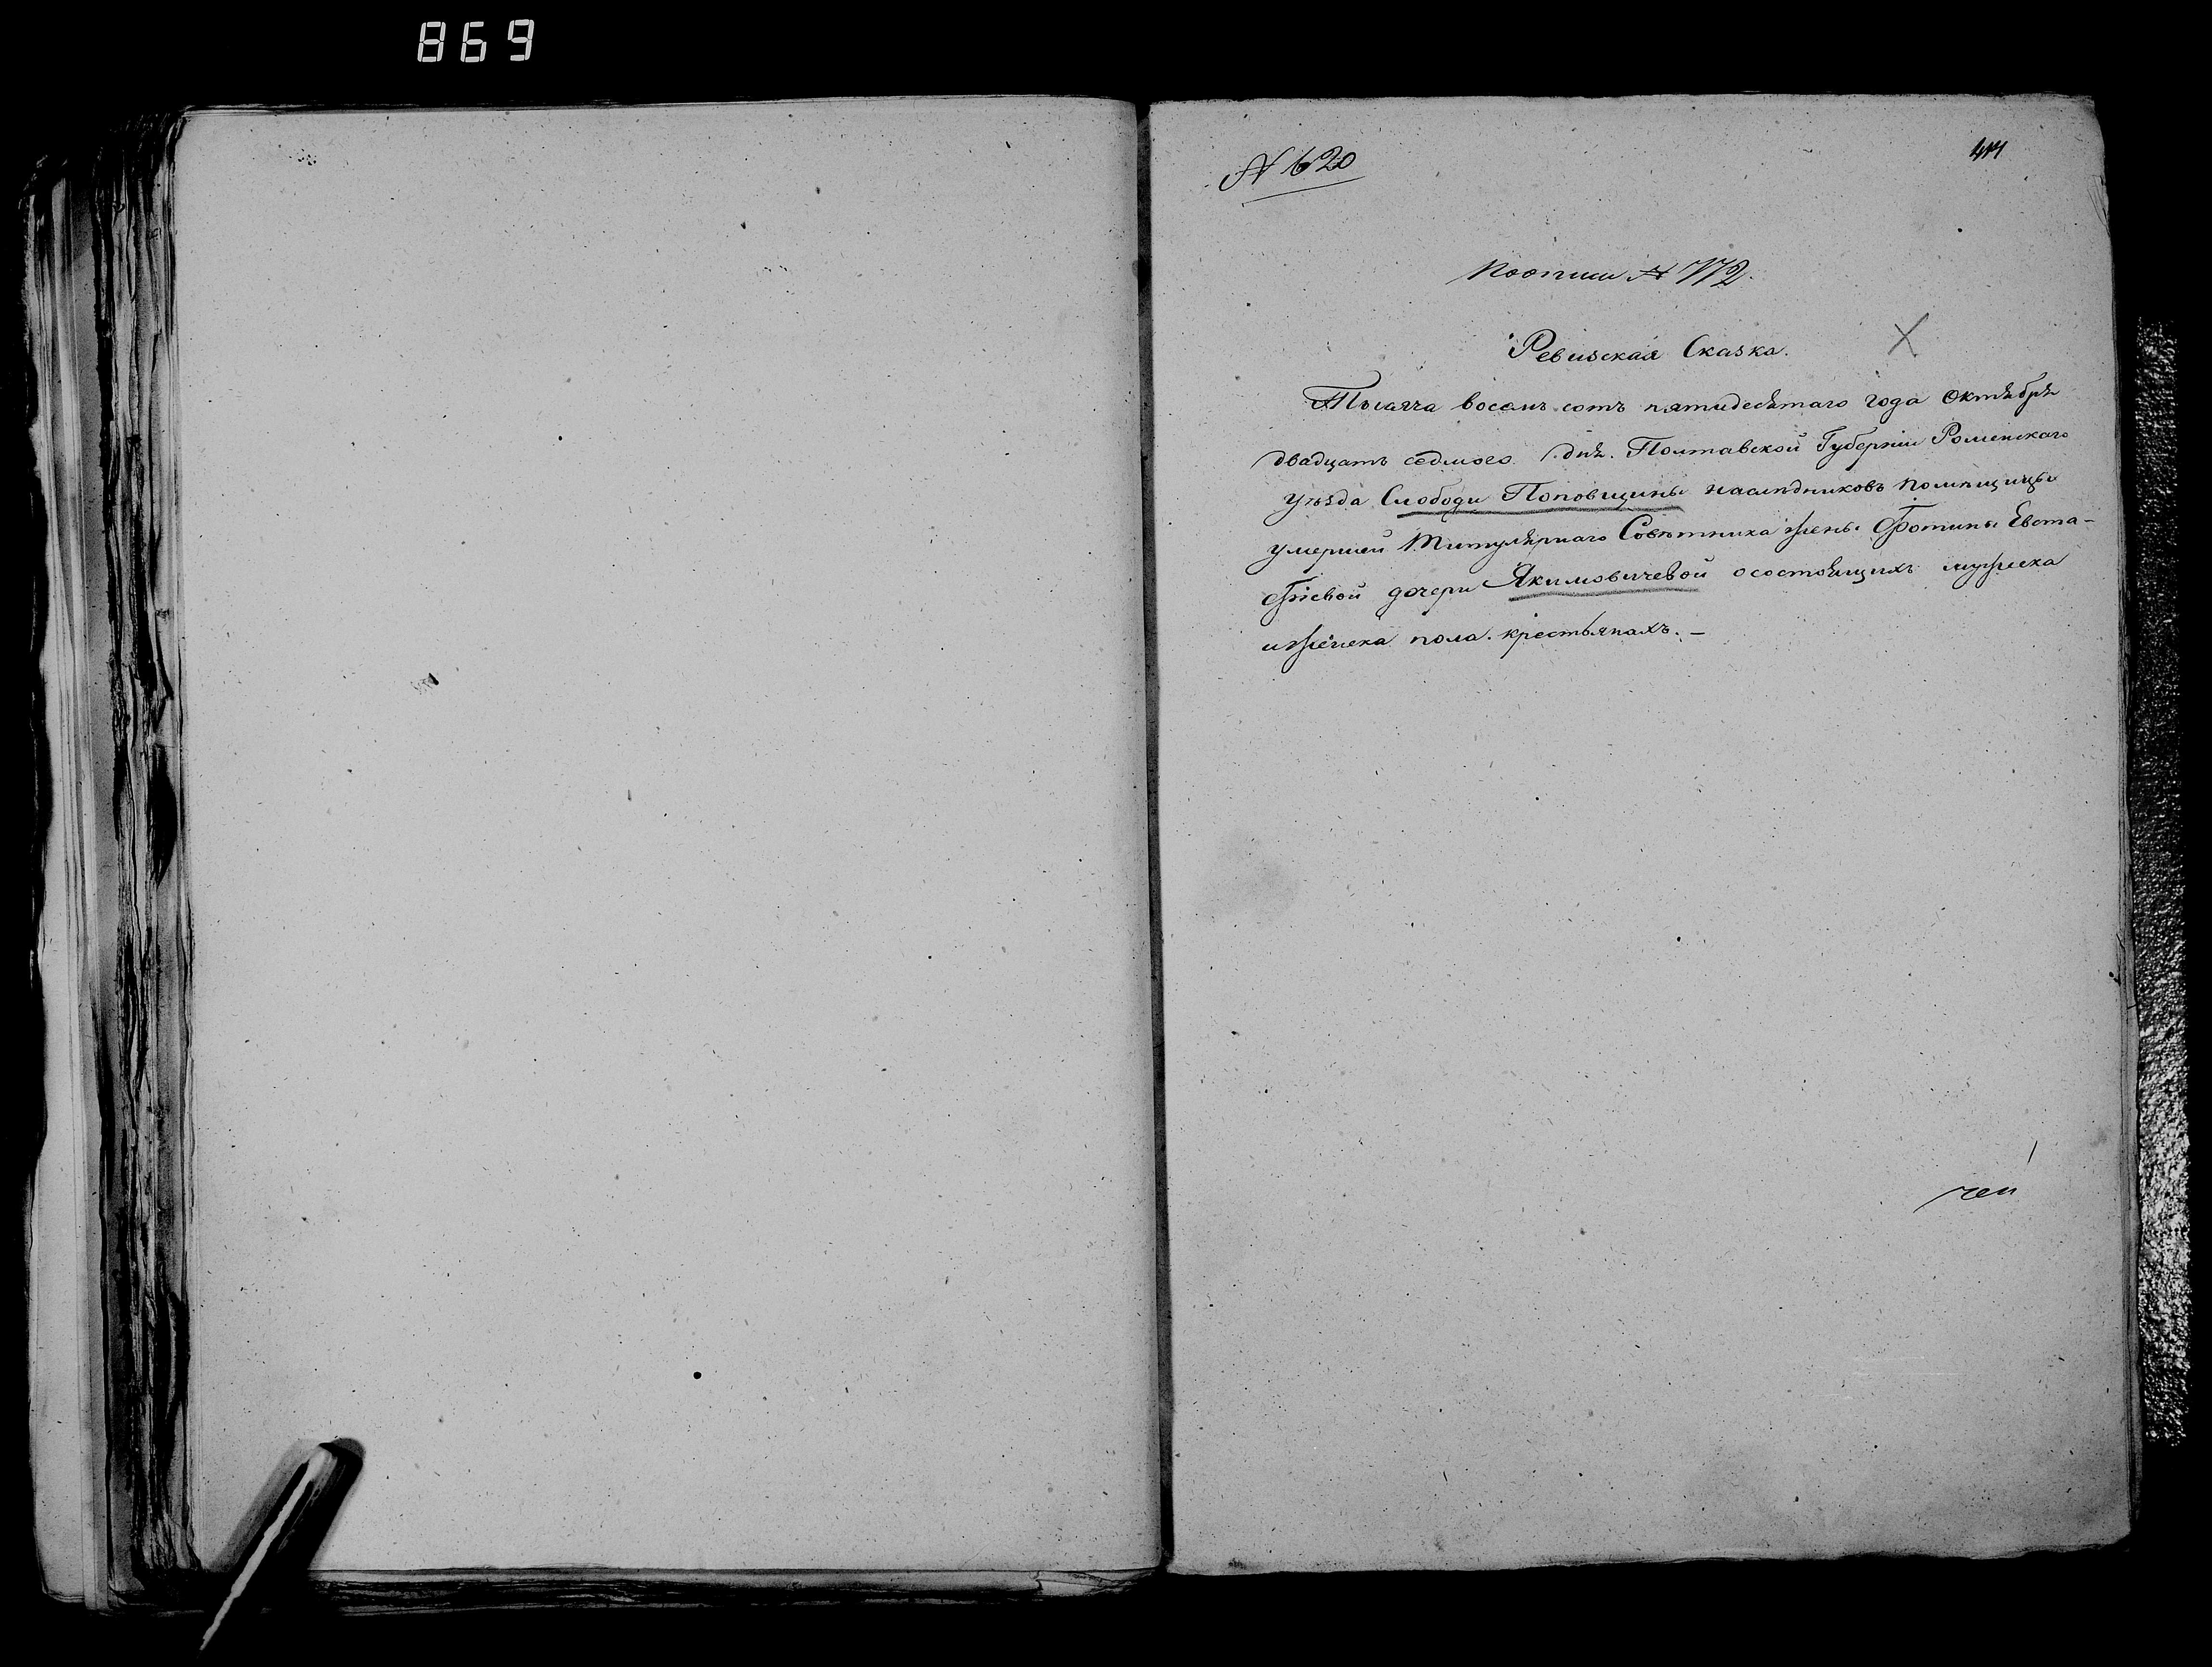 869
N 620
По описи N 772.
Ревизская Сказка.
Тысяча восемь сотъ пятидесятаго года Октября
двадцать седмого дня. Полтавской Губерніи Роменскаго
уѣзда Слободи Поповщины наслѣдниковъ помѣщицы
умершей Титулярнаго Совѣтника жены Фотины Евста-
фіевой дочери Якимовичевой о состоящихъ мужеска
и женска пола. крестьянахъ. –